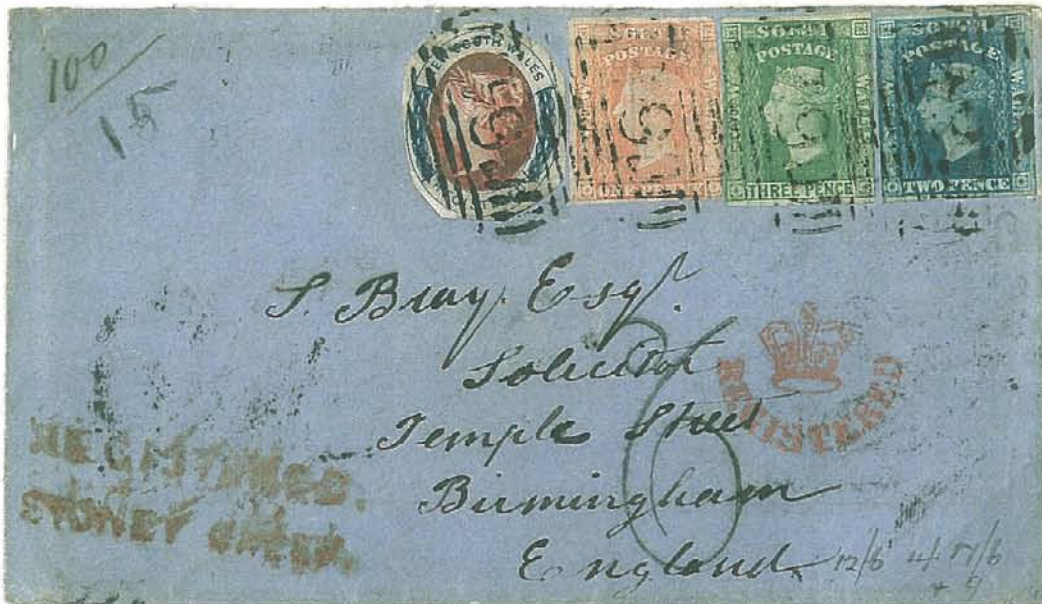 100
15
NEW SOUTH WALES
SOUTH
POSTAGE
WALES
ONE PENNY
SOUTH
POSTAGE
WALES
THREE PENCE
SOUTH
POSTAGE
WALES
TWO PENCE
S. Bray. Esqr.
Solicitor
Temple Street
Birmingham
England
6
REGISTERED
REGISTERED.
12/6